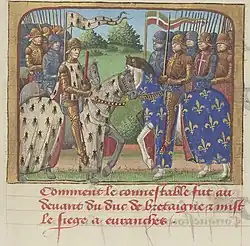 Comment le connestable fut au
deuant du duc de bretaigne a mist
le siege a euranches